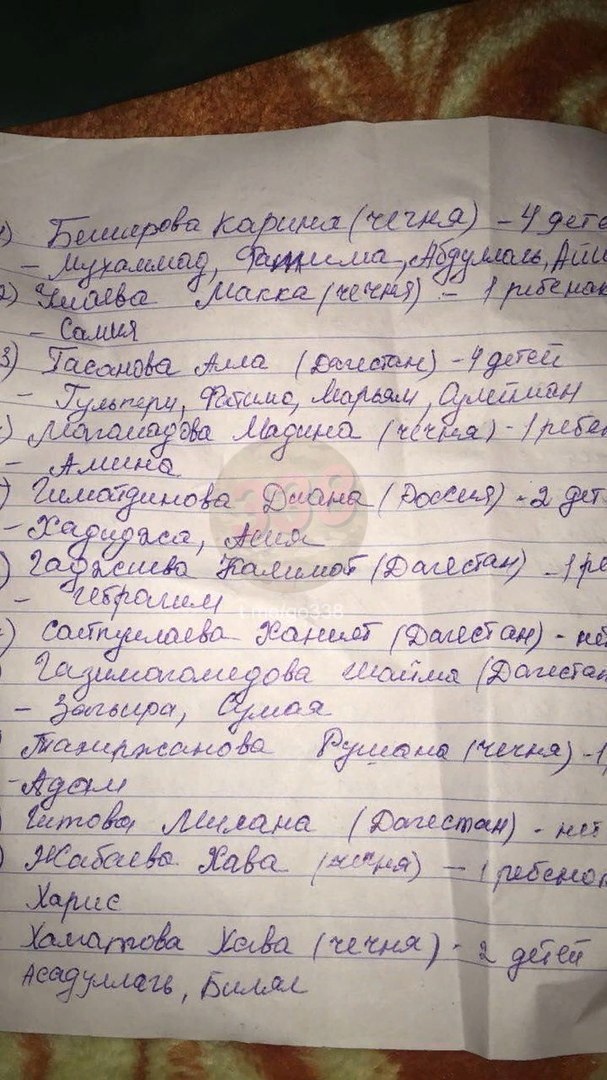 1) Беширова Карина (чечня) - 4 дете
- Мухаммад, Фатима, Абдуллагь, Айш
2) Улаева Макка (чечня) - 1 ребёнок
- Самия
3) Гасанова Алла (Дагестан) - 4 детей
- Гульпери, Фатима, Марьям, Сулейман
Магомадова Мадина (чечня) - 1 ребен
- Амина
Гиматдинова Диана (Россия) - 2 дет
- Хадиджа, Асия
Гаджиева Калимот (Дагестан) - 1 ре
- Ибрагим
338
t.me/go338
Сайпуллаева Ханият (Дагестан) - нет
Газимагомедова Шайма (Дагестан
- Загьира, Сумая
Тахиржанова Румана (чечня) - 1
- Адам
Гитова Милана (Дагестан) - нет
Жабаева Хава (чечня) - 1 ребенок
Харис
Хаматова Хава (чечня) - 2 детей
Асадуллагь, Билал